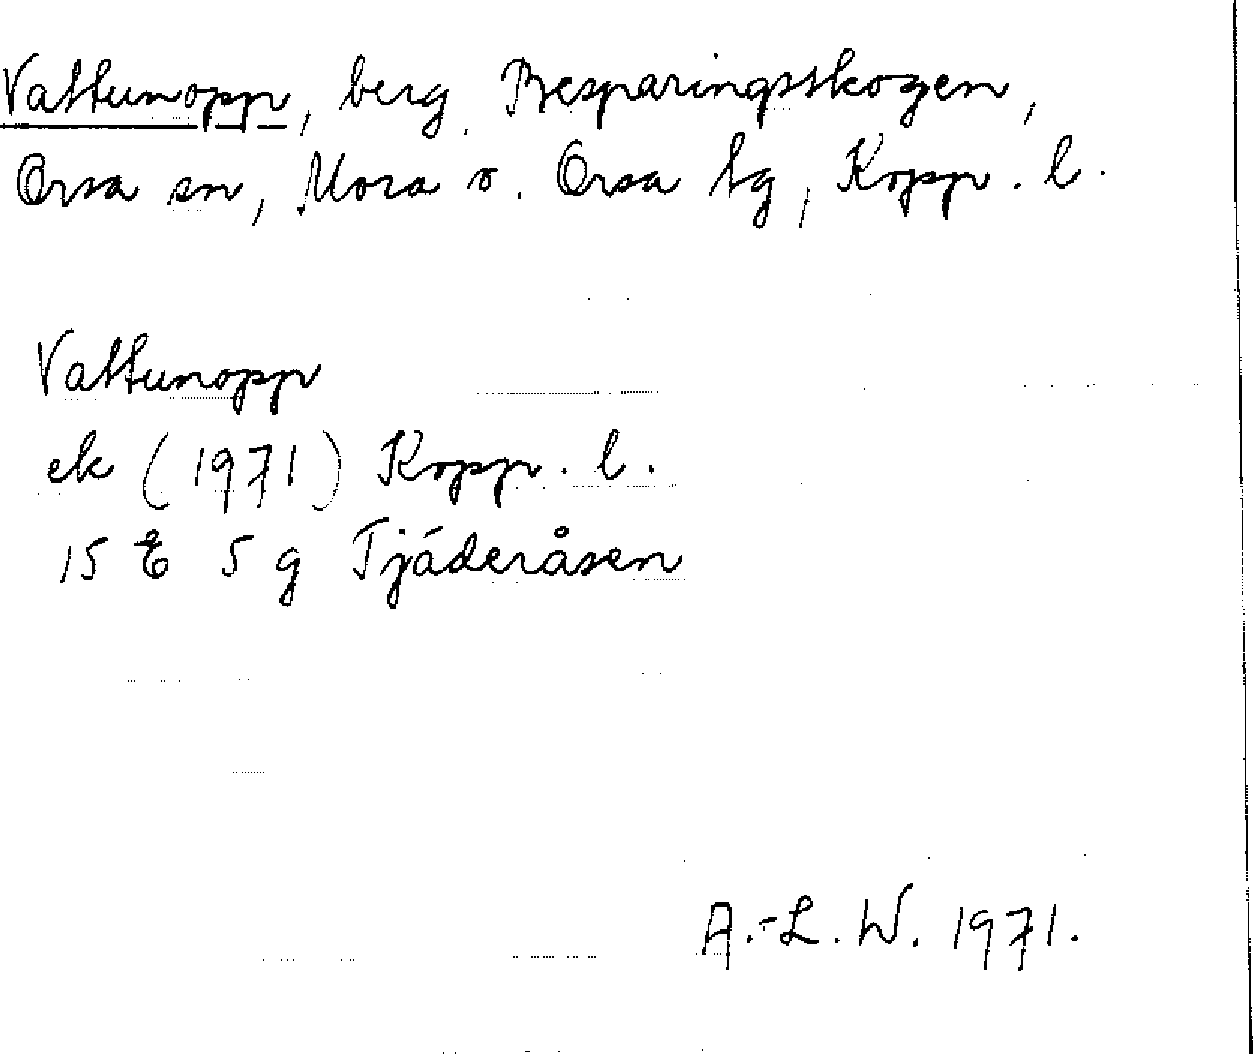 Vattunopp, berg, Besparingsskogen,
Orsa sn, Mora o. Orsa tg, Kopp. l.
Vattunopp
ek (1971) Kopp. l.
15 E 5 g Tjäderåsen
A.-L. W. 1971.